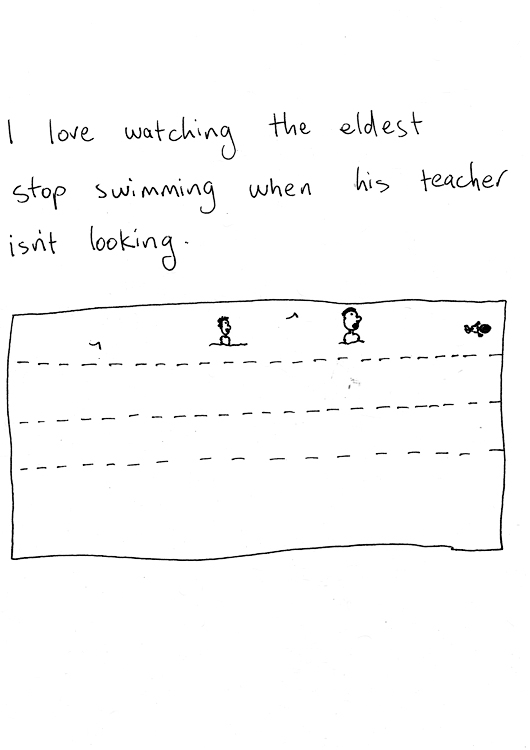 I love watching the eldest
stop swimming when his teacher
isn't looking.